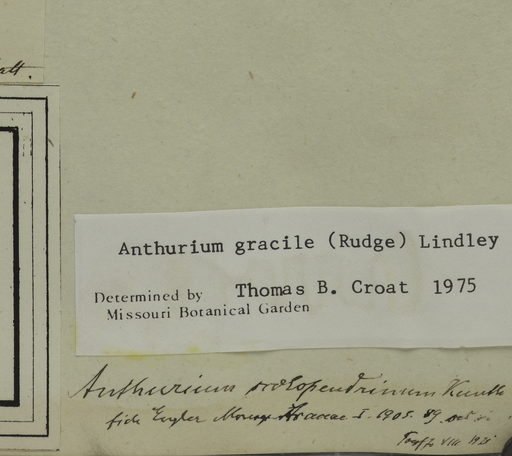 Anthurium gracile (Rudge) Lindley
Determined by Thomas B. Croat 1975
Missouri Botanical Garden
Anthurium scolopendrinum Kunth
fide Engler Araceae I. 1905. 89.
VIII 192